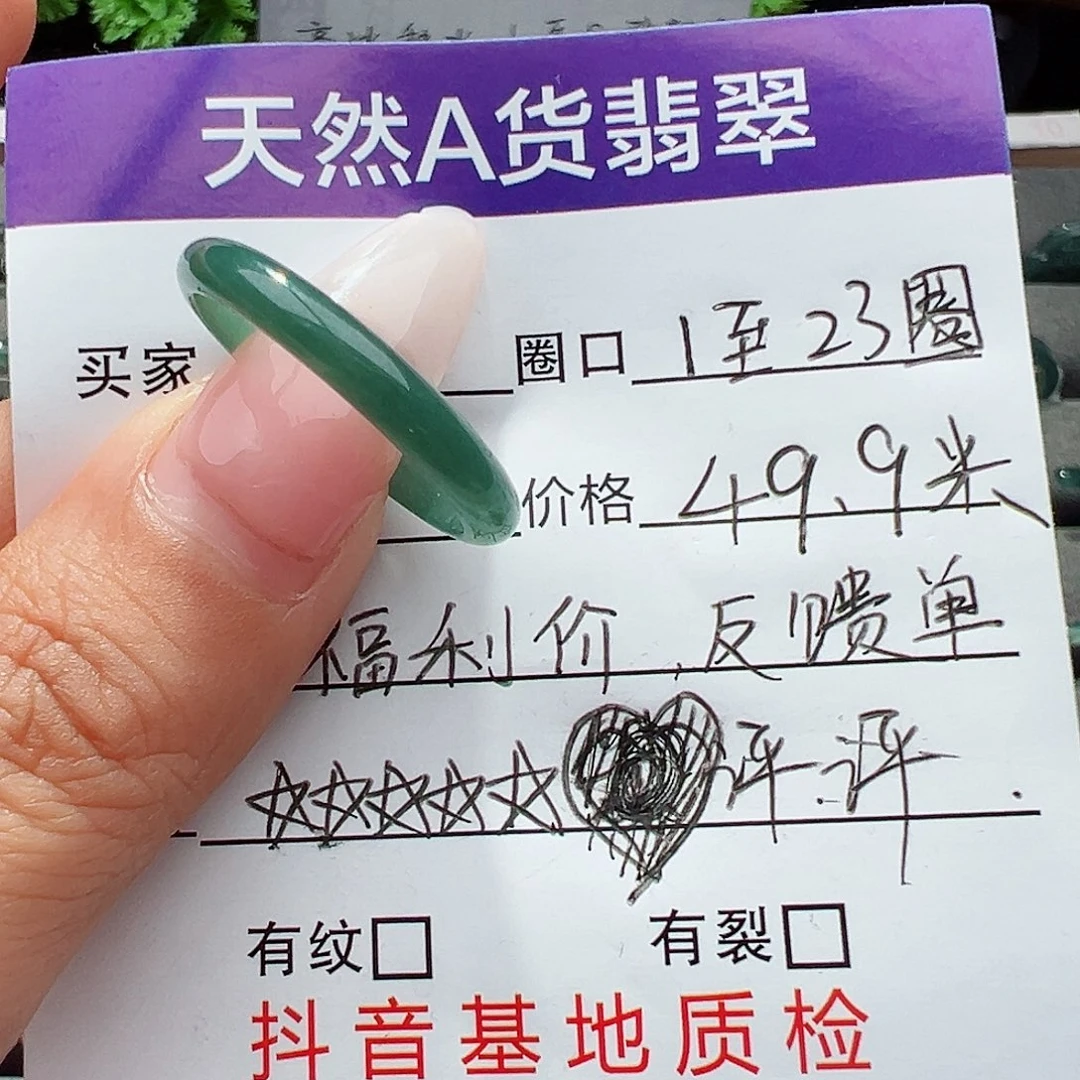 天然A货翡翠
买家 圈口 1至23圈
价格 49.9米
福利价，反馈单
☆☆☆☆☆ 评评.
有纹□ 有裂□
抖音基地质检